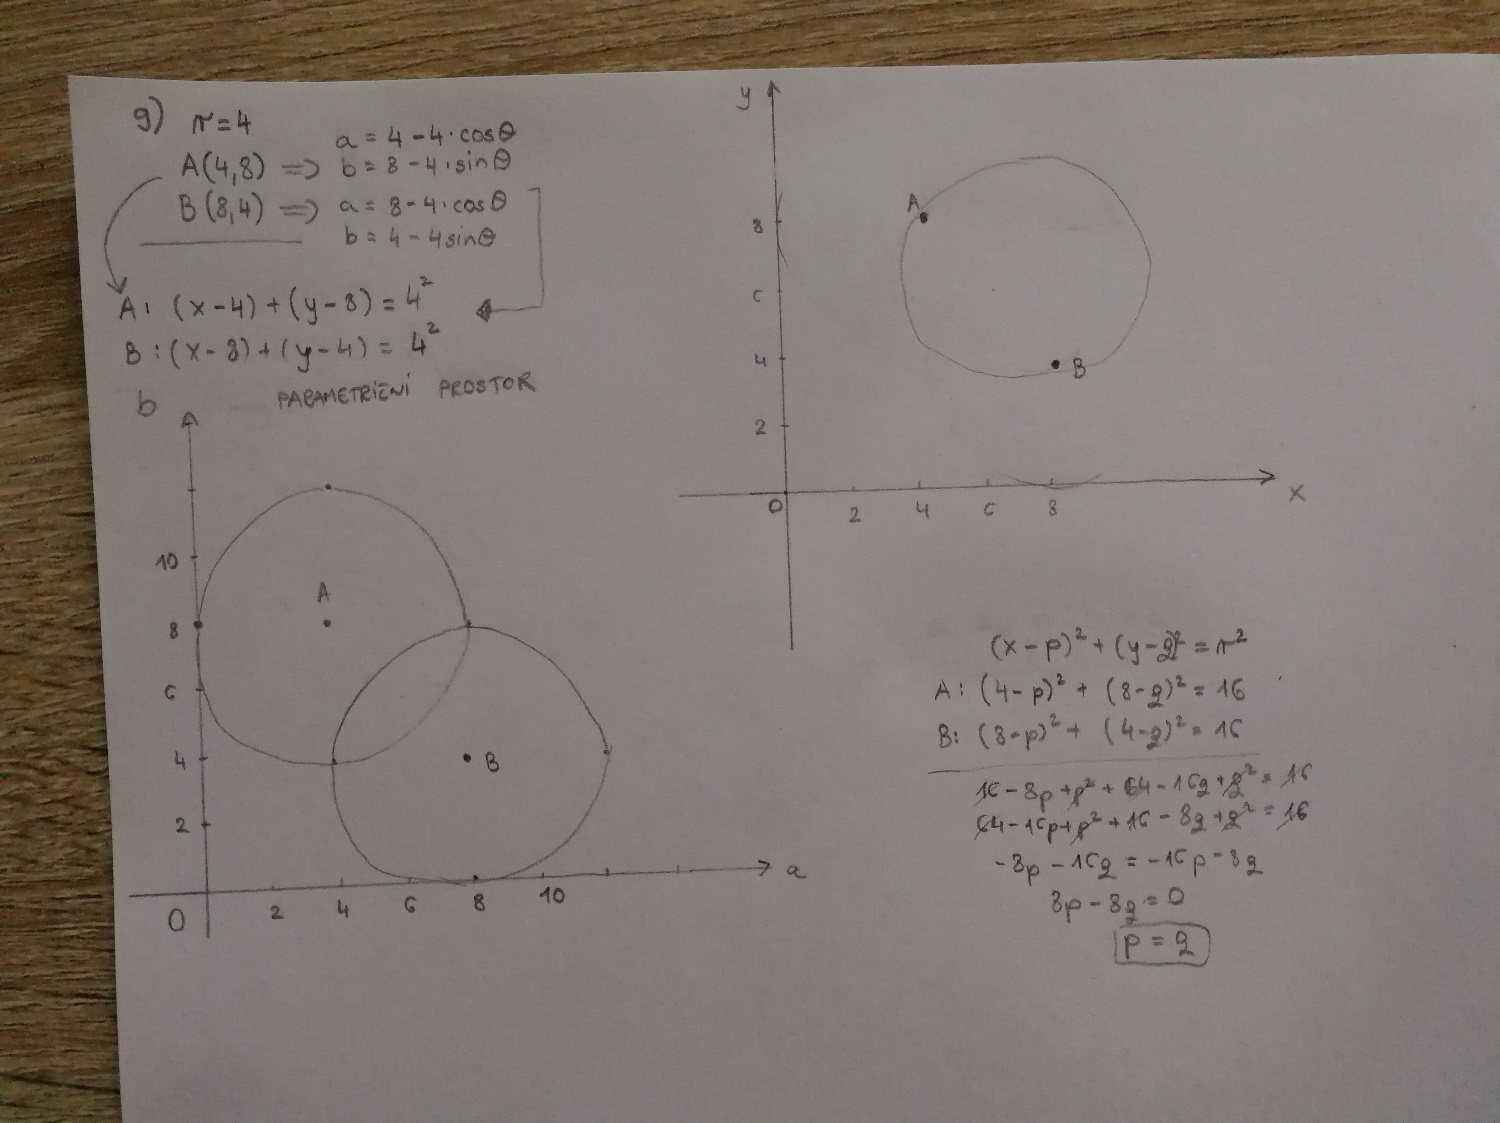 9) r=4
a = 4 - 4·cosθ
A(4,8) => b = 8 - 4·sinθ
B(8,4) => a = 8 - 4·cosθ
b = 4 - 4sinθ
A: (x-4) + (y-8) = 4²
B: (x-8) + (y-4) = 4²
PARAMETRIČNI PROSTOR
b
10
8
6
4
2
0
2
4
6
8
10
a
A
B
y
8
6
4
2
0
2
4
6
8
x
A
B
(x-p)² + (y-q)² = r²
A: (4-p)² + (8-q)² = 16
B: (8-p)² + (4-q)² = 16
16 - 8p + p² + 64 - 16q + q² = 16
64 - 16p + p² + 16 - 8q + q² = 16
-8p - 16q = -16p - 8q
8p - 8q = 0
p = q